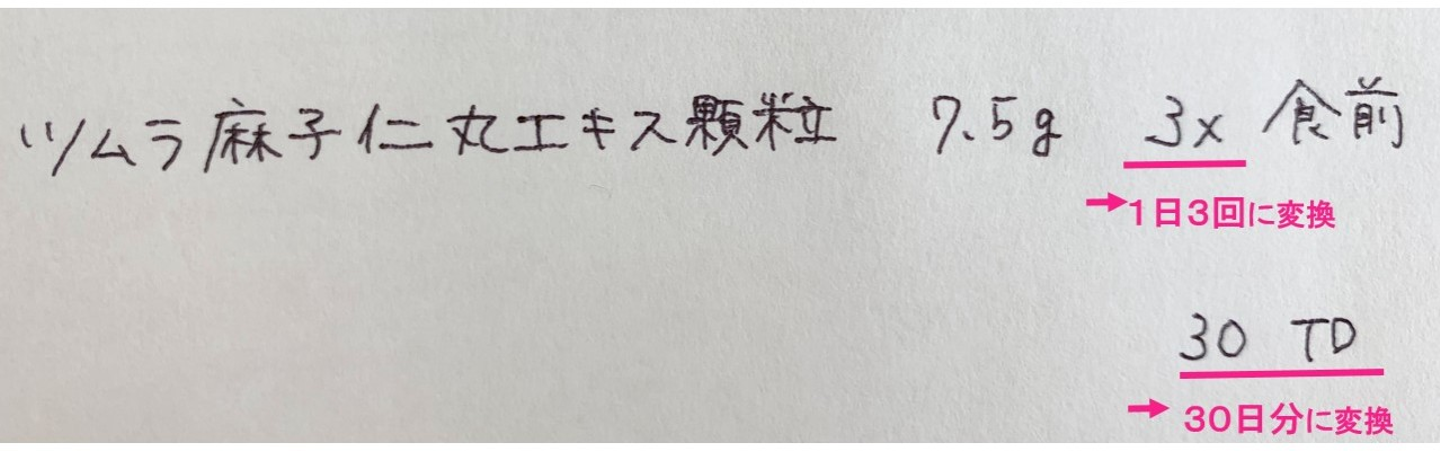 ツムラ麻子仁丸エキス顆粒 7.5g 3x 食前
→1日3回に変換
30 TD
→ 30日分に変換